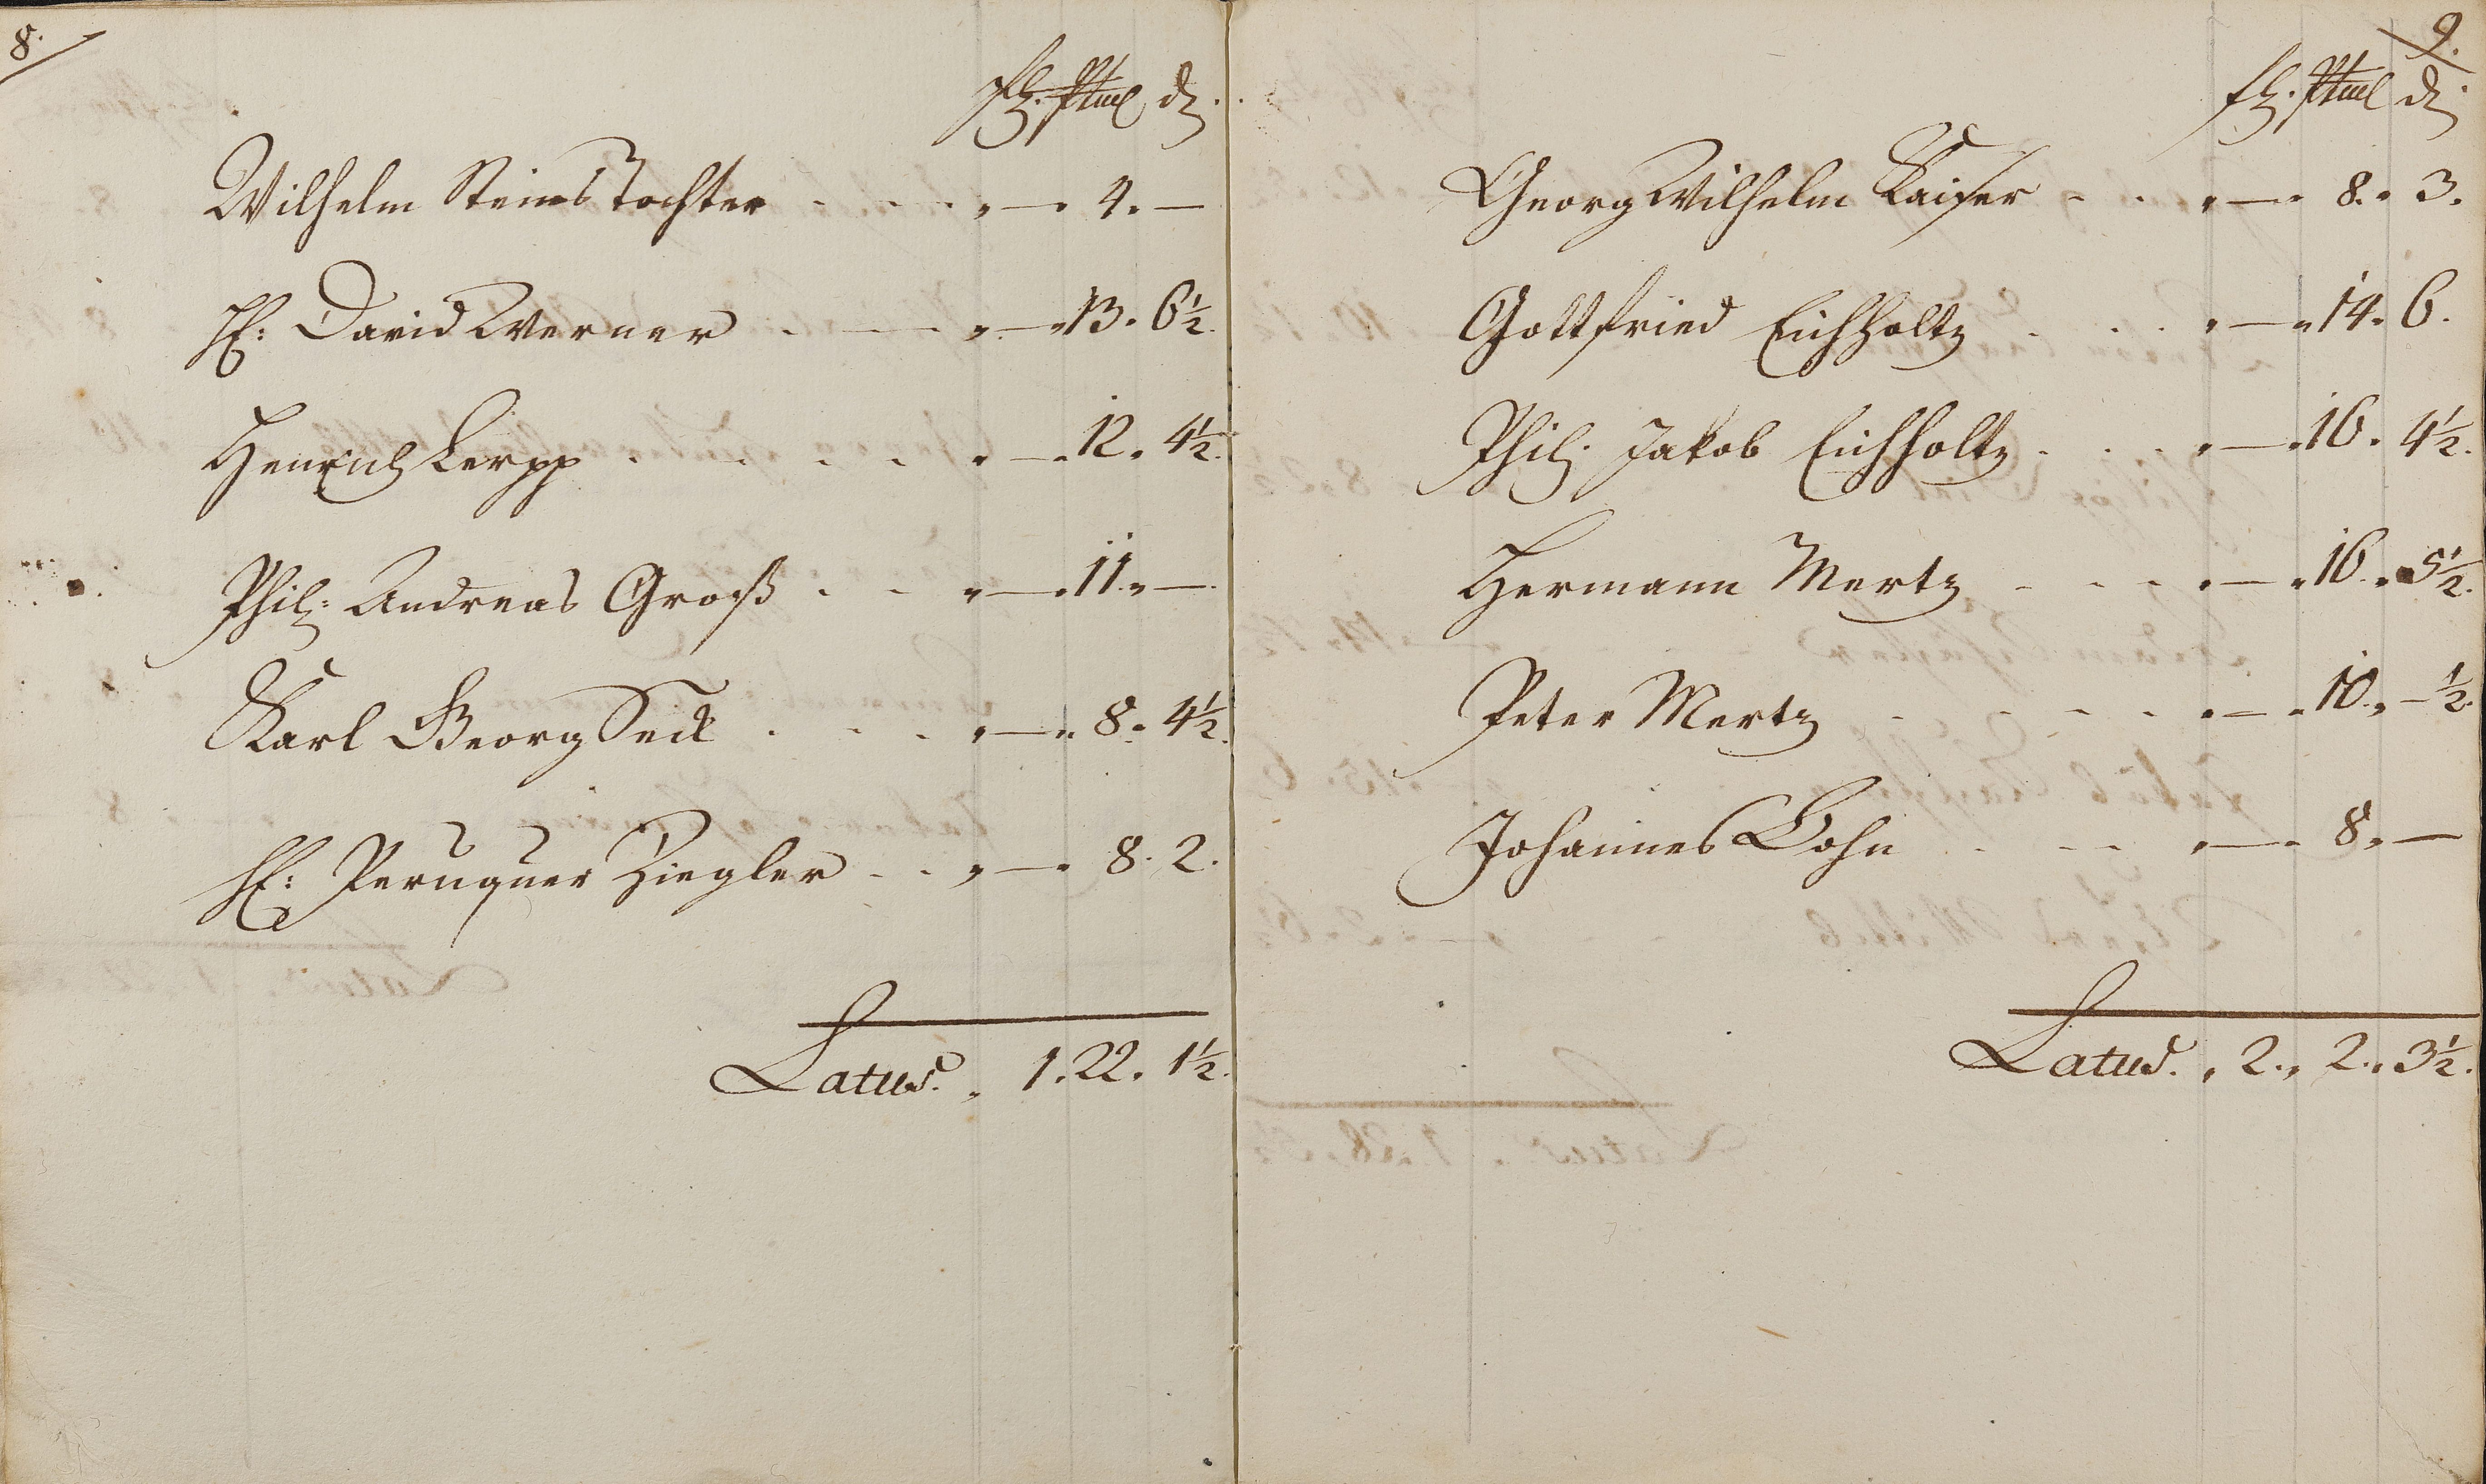 8.
fl. Stüel dl.
Wilhelm Steins Tochter . . . „ — . 4. —
H: David Werner . — — „ — „ 13. 6½.
Henrich Lerpp . . . . . — . 12. 4½.
Phil: Andreas Groß . . „ — . 11. „ —.
Karl Georg Seck . . . „ — „ 8. 4½.
H: Peruquer Ziegler . . „ — . 8. 2.
Latus. „ 1. 22. 1½.
9.
fl. Stüel dl.
Georg Wilhelm Kaiser . . „ — . 8. „ 3.
Gottfried Eichholtz . . . . — „ 14. 6.
Phil: Jakob Eichholtz . . . „ — . 16. 4½.
Hermann Mertz . . . . — „ 16. „ 5½.
Peter Mertz . . . . . — „ 10. „ — ½.
Johannes Bohn . . . „ — . 8. „ —
Latus. „ 2. „ 2. „ 3½.